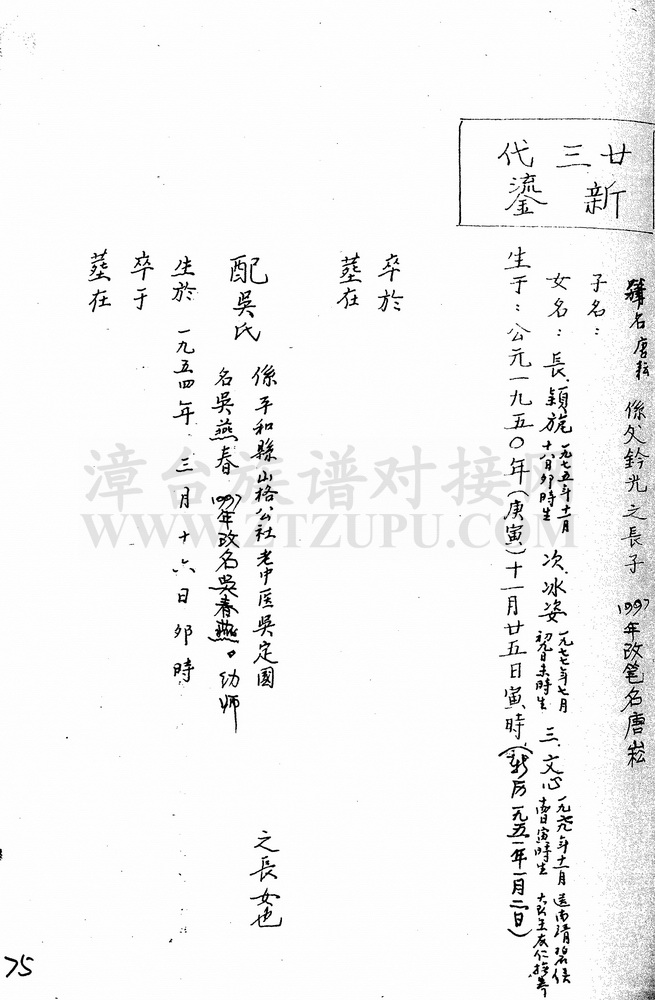 廿三代
新鎏
名唐耘 係父鈐光之長子 1997年改笔名唐崧
子名：
女名：長 穎旎 一九七五年十一月十八日卯時生 次 冰姿 一九七七年七月初九日未時生 三 文心 一九七九年十一月 日寅時生 送南靖
生于：公元一九五〇年（庚寅）十一月廿五日寅時（新历一九五一年一月二日）
卒於
塟在
配吳氏 係平和縣山格公社老中医吳定國 之長女也
名吳燕春 1997年改名吳春燕。幼师
生於 一九五四年 三月十六日卯時
卒于
塟在
75
漳台族谱对接网
WWW.ZTZUPU.COM